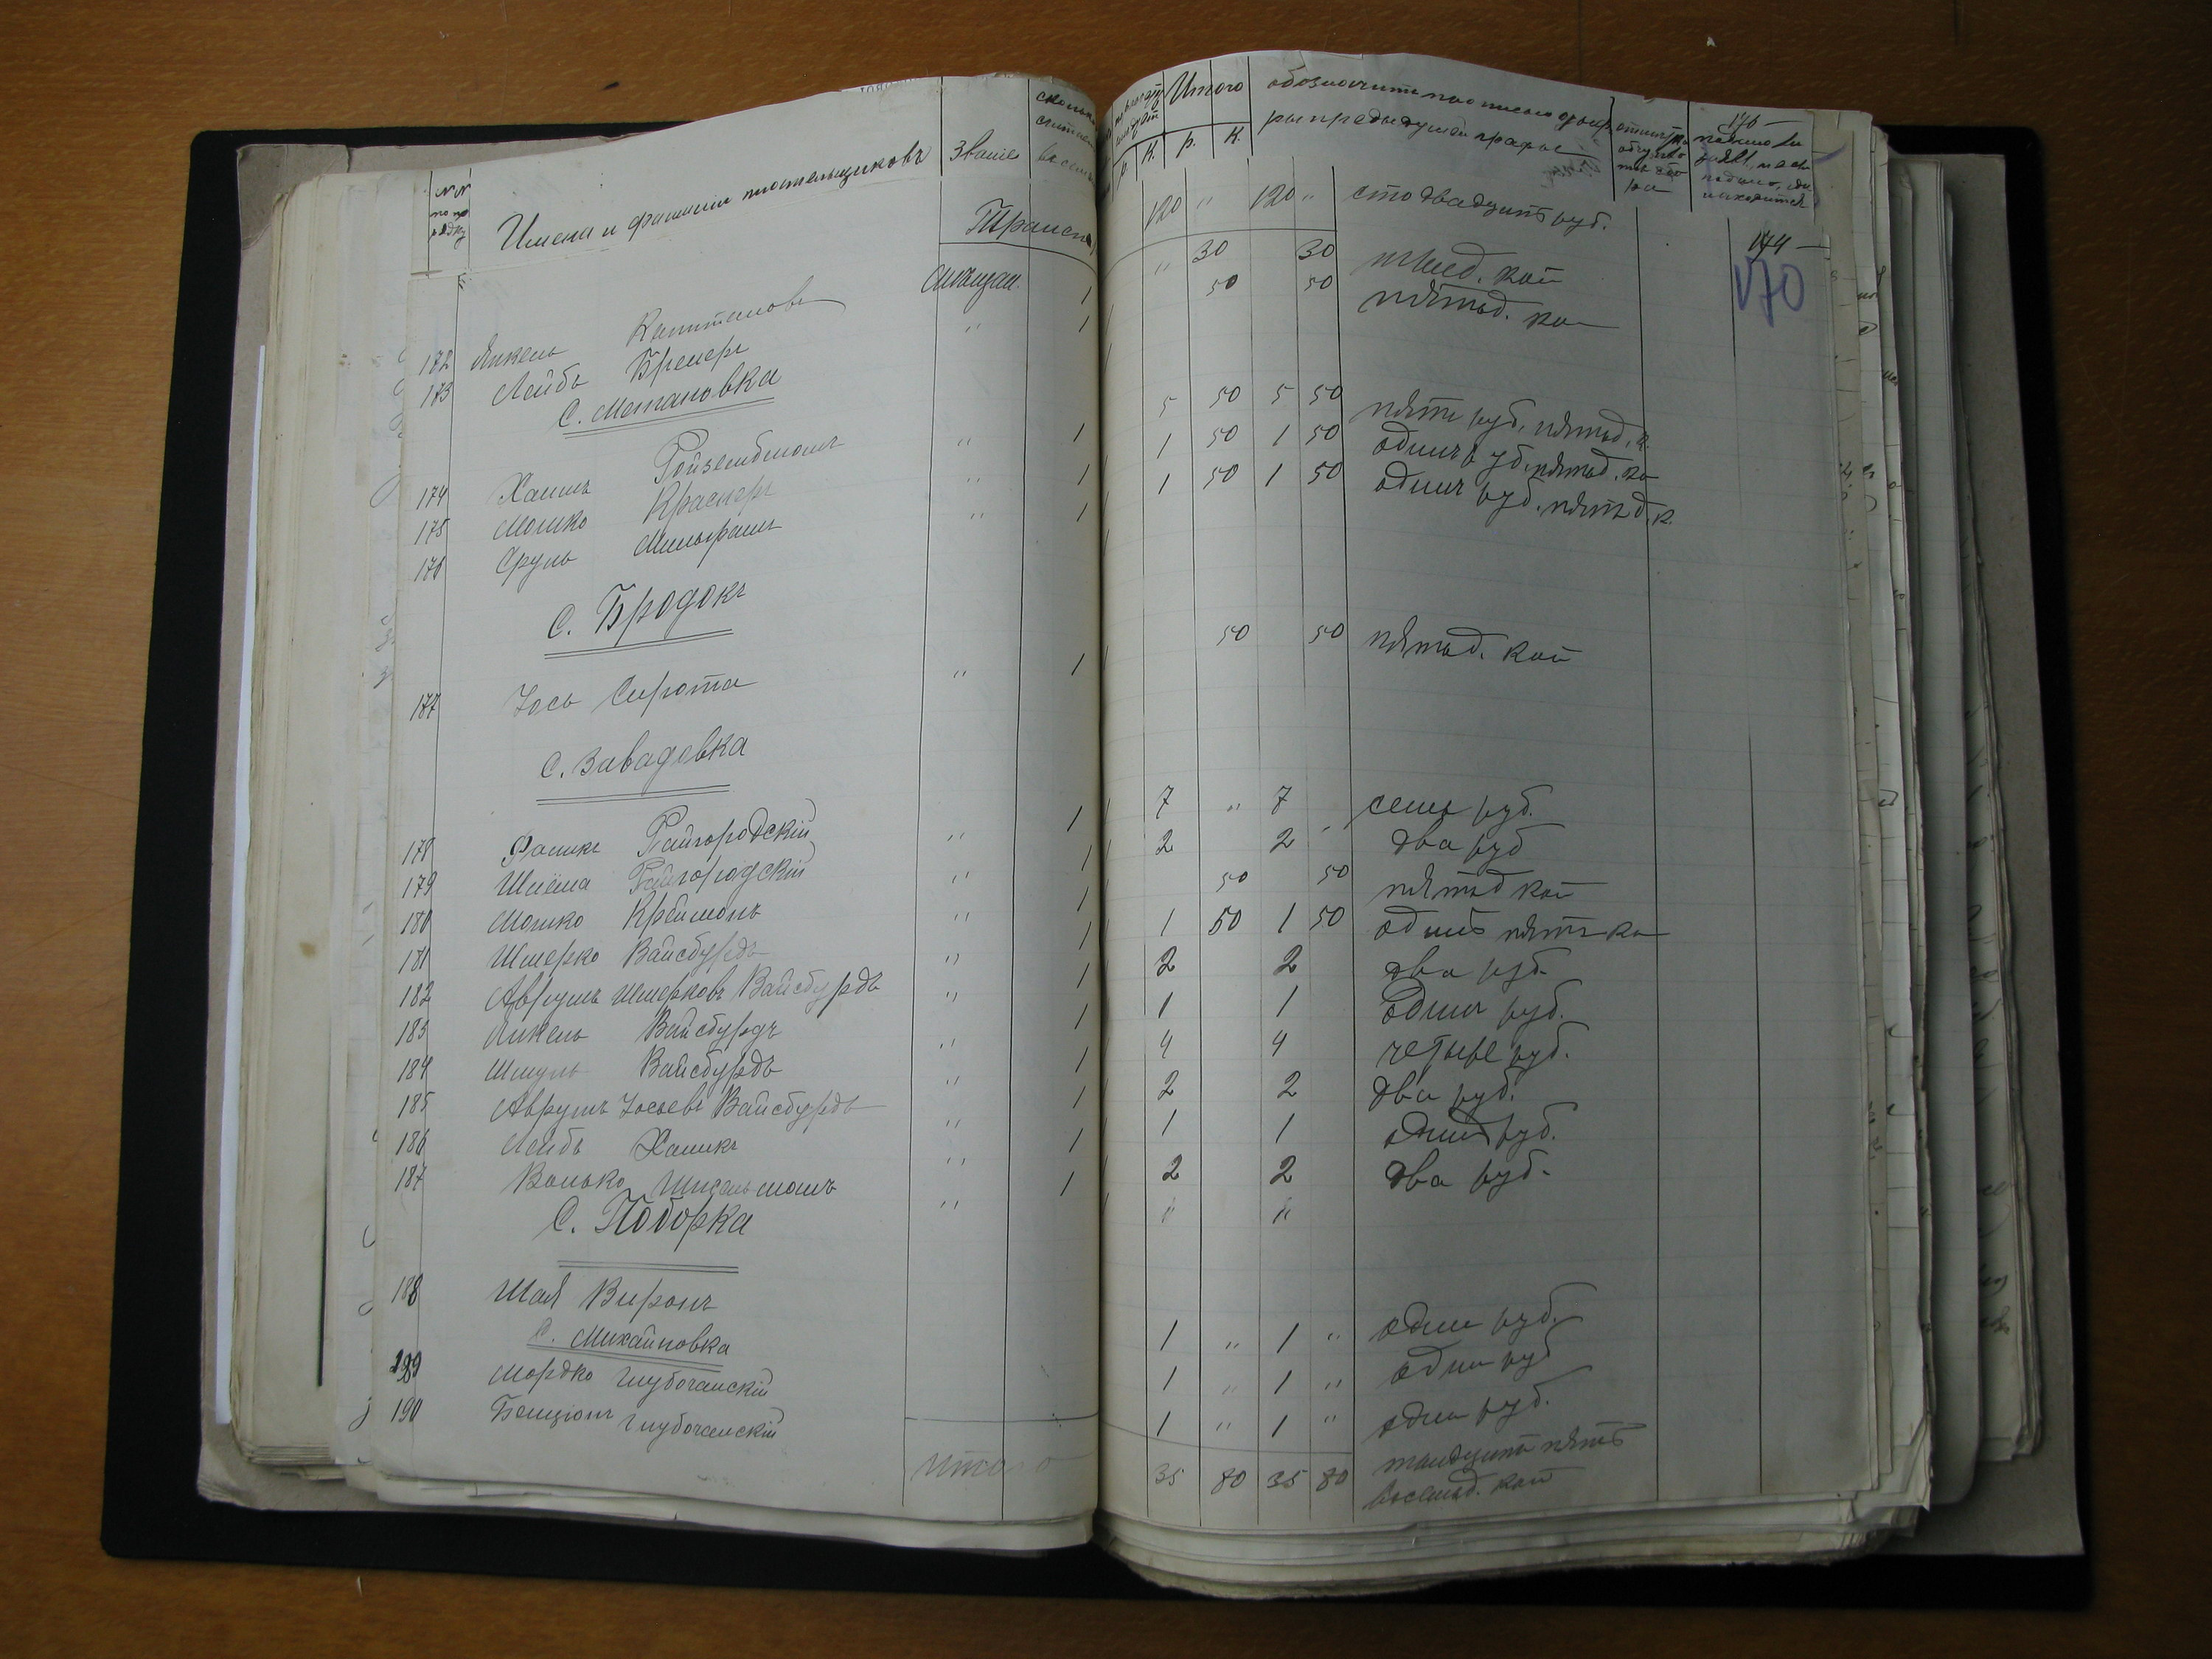 №№ по порядку Имена и фамилии плательщиковъ Званіе
Трансп
172 Янкель мѣщан. 1
173 Лейбъ Бренеръ " 1
С. Степановка
174 Хаимъ Ройзенблитъ " 1
175 Мошко Краснеръ " 1
176 Сруль Мильграмъ " 1
С. Бродокъ
177 Іось Сирота " 1
С. Завадовка
178 Райгородскій " 1
179 Шлёма Райгородскій " 1
180 Мошко Крейманъ " 1
181 Шмерко Вайсбурдъ " 1
182 Аврумъ Шмерковъ Вайсбурдъ " 1
183 Янкель Вайсбурдъ " 1
184 Шмуль Вайсбурдъ " 1
185 Аврумъ Іосьевъ Вайсбурдъ " 1
186 Лейбъ Халикъ " 1
187 Волько " 1
С. Поборка
188 Шая Виронъ
С. Михайловка
189 Мордко Глубочанскій
190 Бенціонъ Глубочанскій
Итого
Итого обозначить прописью
р. к. р. к. предыдущей графы
176
120 " 120 " сто двадцать руб.
174
" 30 30 кой
170
50 50 пятьд. ко
5 50 5 50 пять руб. пятьд. к.
1 50 1 50 одинъ руб. пятьд. ко
1 50 1 50 одинъ руб. пятьд. к.
50 50 пятьд. коп
7 " 7 семь руб.
2 2 два руб
50 50 пятьд коп
1 50 1 50 одинъ пять ко
2 2 два руб.
1 1 одинъ руб.
4 4 четыре руб.
2 2 два руб.
1 1 одинъ руб.
2 2 два руб.
" "
1 " 1 " одинъ руб.
1 " 1 " одинъ руб
1 " 1 " одинъ руб.
35 80 35 80 тридцать пять
восемьд. коп